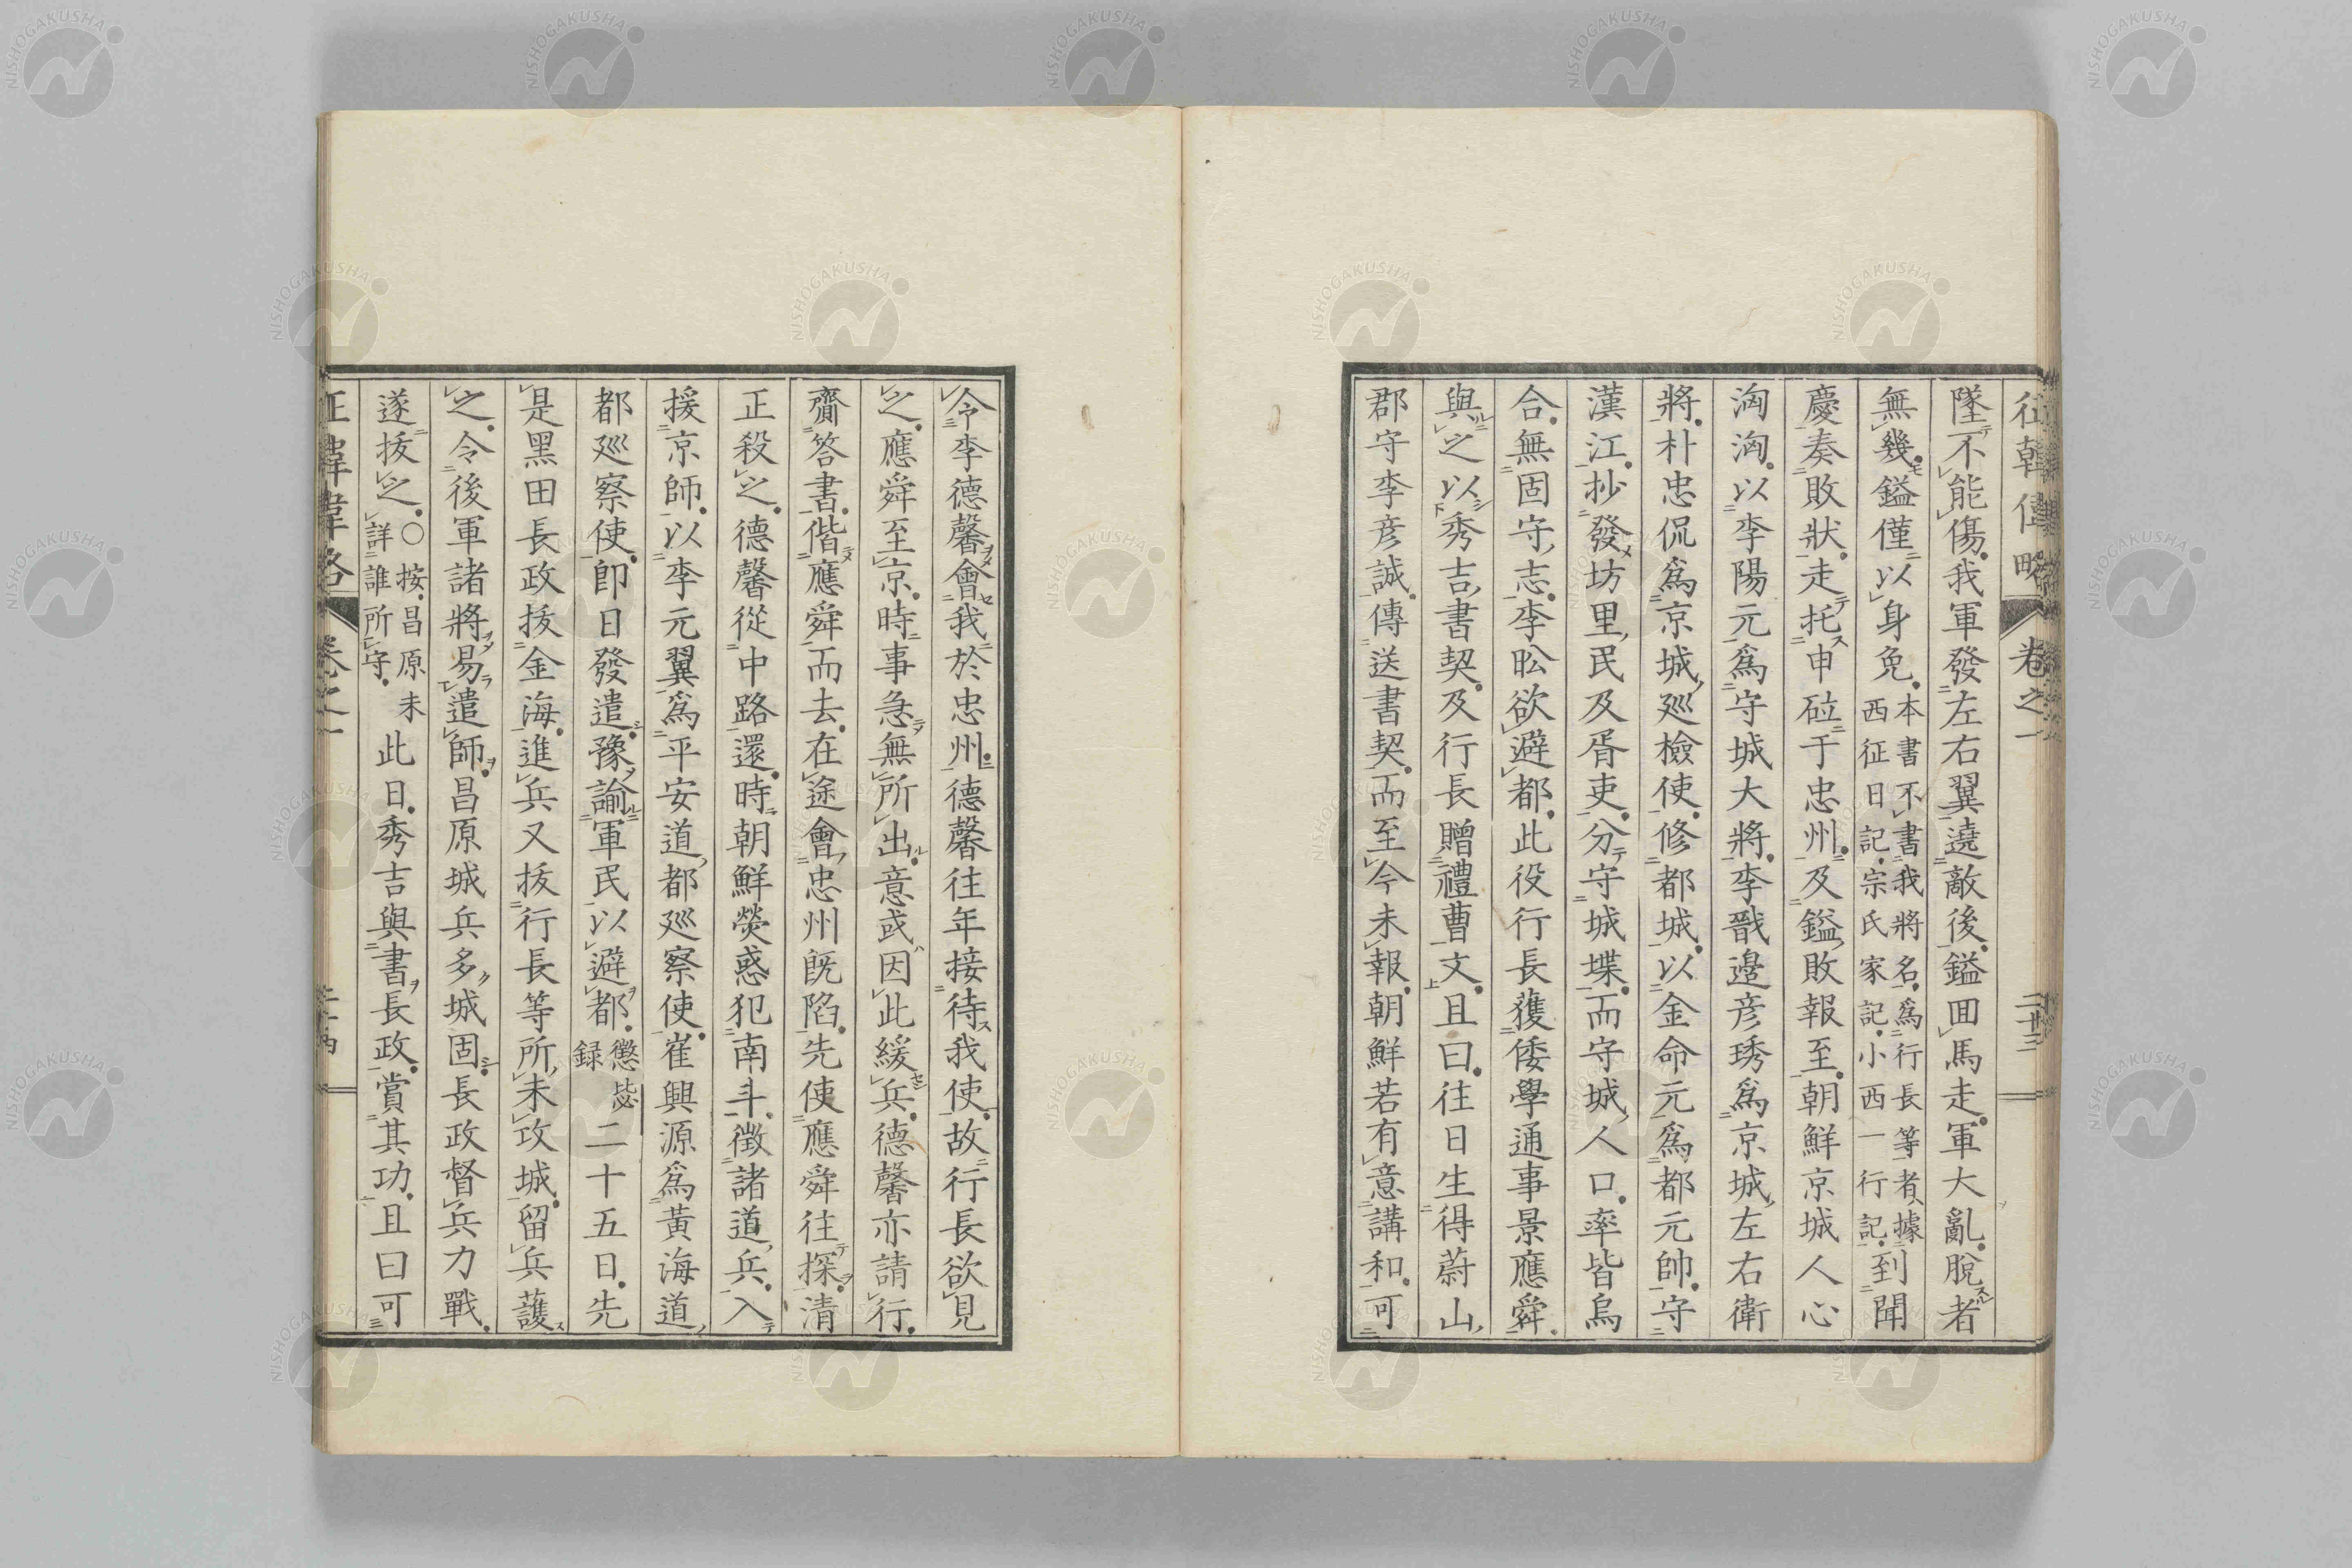 征韓偉略 卷之一 二十三
墜不能傷我軍發左右翼遶敵後鎰回馬走軍大亂脫者
無幾鎰僅以身免本書不書我將名爲行長等者據西征日記宗氏家記小西一行記到聞
慶奏敗狀走托申砬于忠州及鎰敗報至朝鮮京城人心
洶洶以李陽元爲守城大將李戩邊彦琇爲京城左右衛
將朴忠侃爲京城巡檢使修都城以金命元爲都元帥守
漢江抄發坊里民及胥吏分守城堞而守城人口率皆烏
合無固守志李昖欲避都此役行長獲倭學通事景應舜
與之以秀吉書契及行長贈禮曹文且曰往日生得蔚山
郡守李彦誠傳送書契而至今未報朝鮮若有意講和可
令李德馨會我於忠州德馨往年接待我使故行長欲見
之應舜至京時事急無所出意或因此緩兵德馨亦請行
齎答書偕應舜而去在途會忠州既陷先使應舜往探清
正殺之德馨從中路還時朝鮮熒惑犯南斗徵諸道兵入
援京師以李元翼爲平安道都巡察使崔興源爲黃海道
都巡察使即日發遣豫諭軍民以避都懲毖錄二十五日先
是黑田長政拔金海進兵又拔行長等所未攻城留兵護
之令後軍諸將易遣師昌原城兵多城固長政督兵力戰
遂拔之○按昌原未詳誰所守此日秀吉與書長政賞其功且曰可